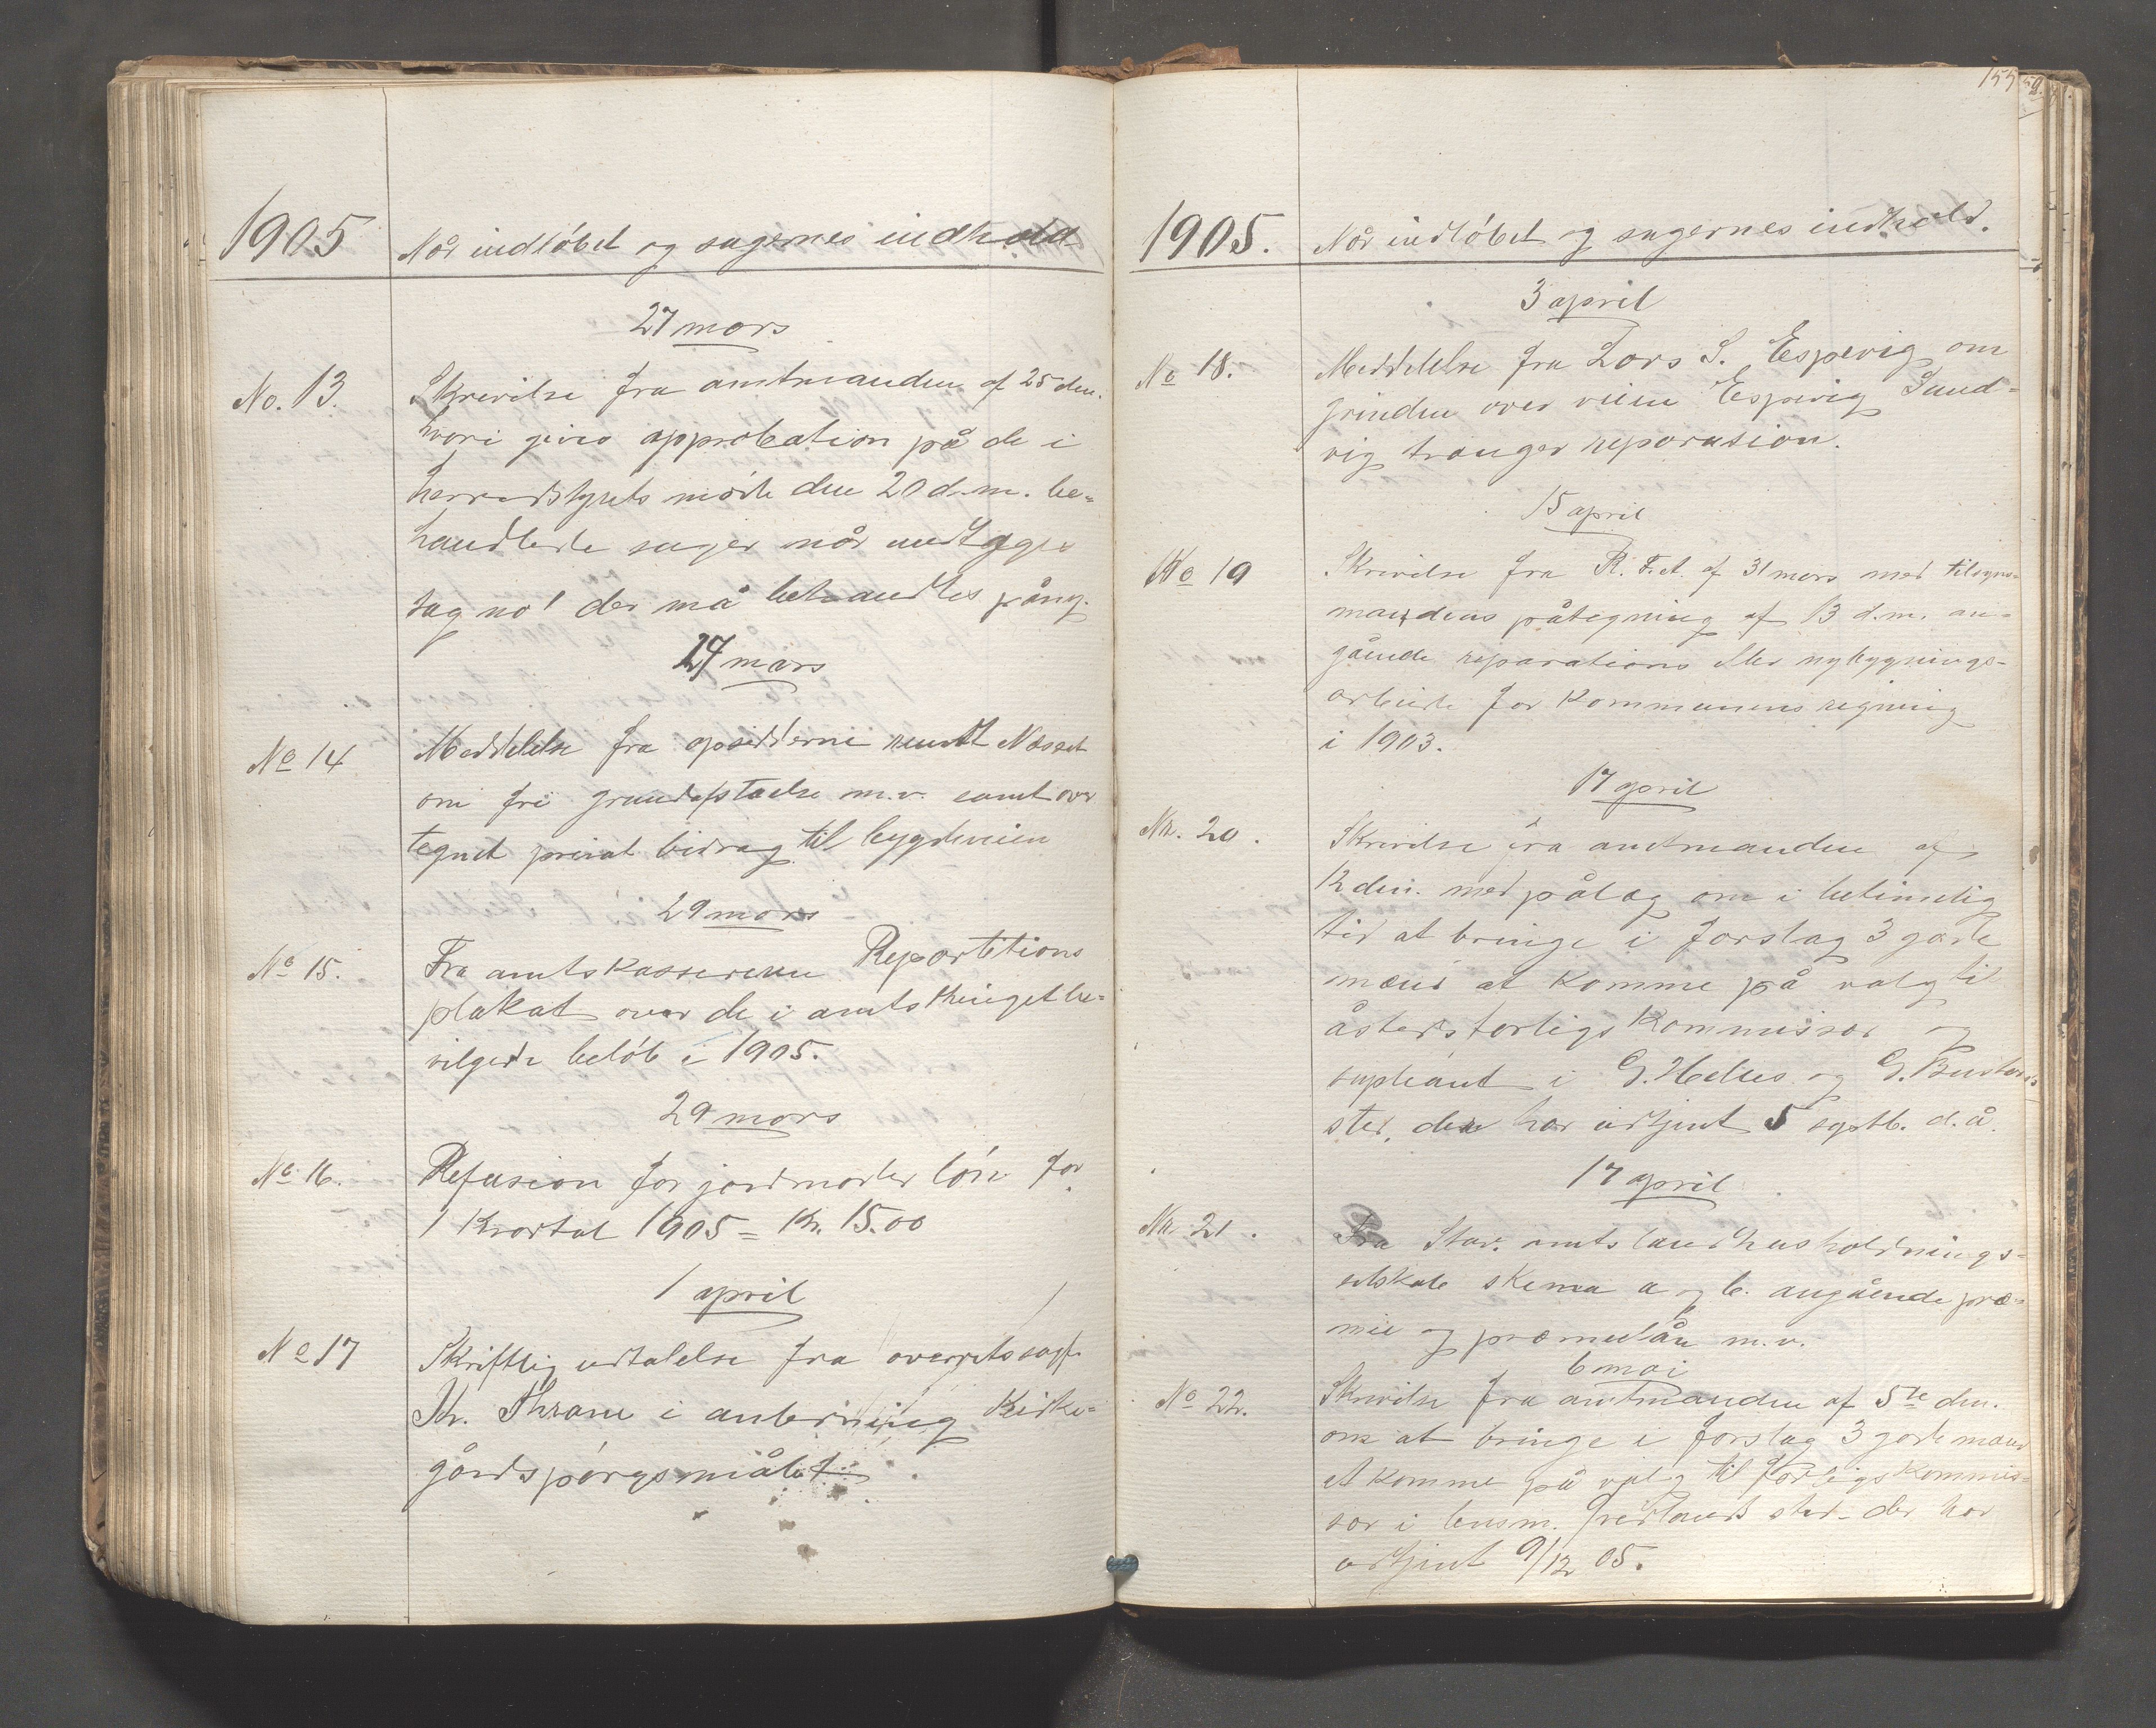 1905
Når indløbet og sagernes indhold
27 mars
No. 13. Skrivelse fra amtmanden af 25 den.
hvori gives approbation på de i
herredstyrets møde den 20 d.m. be-
handlede sager når undtages
sag no 1 der må behandles påny.
27 mars
No 14 Meddelelse fra opsidderne rundt Næsset
om fri grundafståelse m.v. samt over
tegnet privat bidrag til bygdeveien
29 mars
No 15. Fra amtskassereren Repartitions
plakat over de i amtsthinget be-
vilgede beløb i 1905.
29 mars
No 16. Refusion for jordmoder løn for
1 Kvartal 1905 = Kr. 15.00
1 april
No 17 Skriftlig udtalelse fra overretssagf.
Kr. Thrane i anledning Kirke-
gårdspørgsmålet
155
1905. Når indløbet og sagernes indhold.
3 april
No 18. Meddelelse fra Lars S. Espevig om
grinden over veien Espevig Sund-
vig trænger reparasion.
15 april
No 19 Skrivelse fra R. F. A. af 31 mars med tilsyns-
mandens påtegning af 13 d.m. an-
gående reparations eller nybygnings-
arbeide for Kommunens regning
i 1903.
17 april
Nr. 20. Skrivelse fra amtmanden af
12 den. med pålæg om i betimelig
tid at bringe i forslag 3 gode
mænd at komme på valg til
åstedsforligskommissær og
supleant i G. Helles og G.
sted, der har udtjent 5 septb. d.å.
17 april
Nr. 21. Fra Stav. amts landhusholdnings-
selskab skema a og b. angående præ-
mie og præmielån m.v.
6 mai
No 22. Skrivelse fra amtmanden af 5te den.
om at bringe i forslag 3 gode mænd
at komme på valg til Forligskommis-
sær i lensm. Fredlands sted - der har
udtjent 9/12 05.